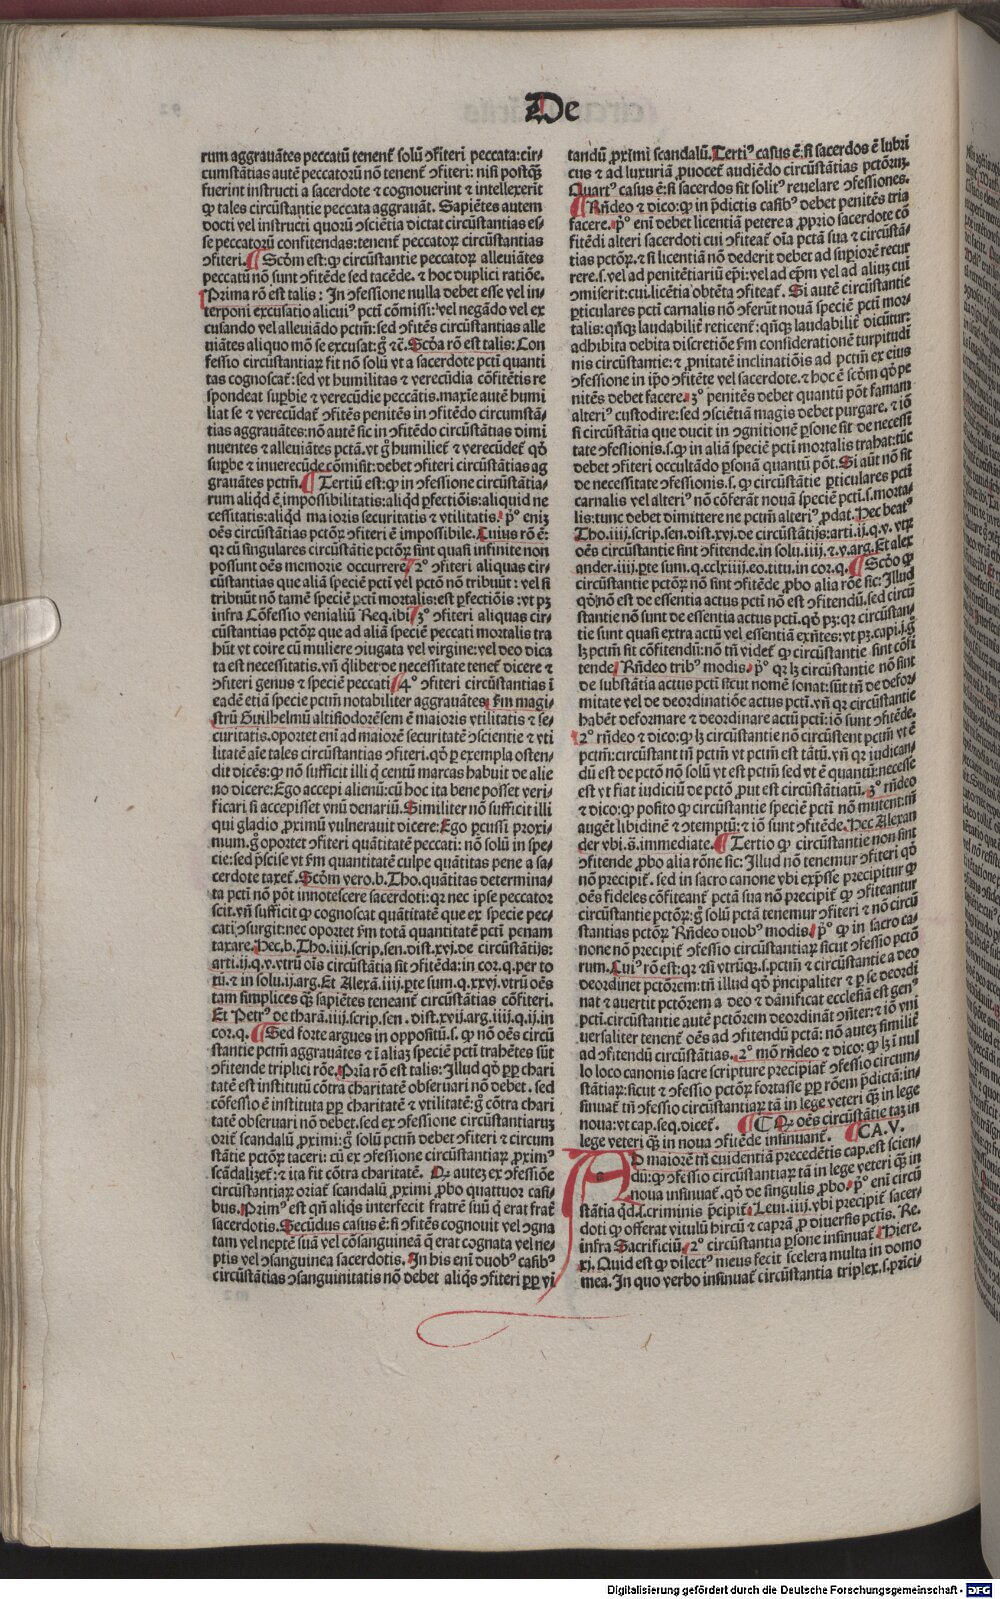 De
rum aggrauãtes peccatũ tenent̃ solũ ɔfiteri peccata: cir-
cumstantias autẽ peccatorũ nõ tenent̃ ɔfiteri: nisi postq̃
fuerint instructi a sacerdote ⁊ cognouerint ⁊ intellexerit
ꝙ tales circũstantie peccata aggrauãt. Sapiẽtes autem
docti vel instructi quorũ ɔsciẽtia dictat circũstantias es-
se peccatorũ confitendas: tenent̃ peccatoꝝ circũstantias
ɔfiteri. ¶ Scḋm est: ꝙ circũstantie peccatoꝝ alleuiãtes
peccatũ nõ sunt ɔfitẽde sed tacẽde. ⁊ hoc duplici ratiõe.
Prima rõ est talis: In ɔfessione nulla debet esse vel in-
terponi excusatio alicuiꝰ pcti cõmissi: vel negãdo vel ex
cusando vel alleuiãdo pctm̃: sed ɔfitẽs circũstantias alle
uiãtes aliquo mõ se excusat: g̊ ⁊c̃. Scḋa rõ est talis: Con
fessio circũstantiaꝝ fit nõ solũ vt a sacerdote pcti quanti
tas cognoscat̃: sed vt humilitas ⁊ verecũdia cõfitẽtis re
spondeat supbie ⁊ verecũdie peccãtis. maxĩe autẽ humi
liat se ⁊ verecũdat̃ ɔfitẽs penitẽs in ɔfitẽdo circumstã-
tias aggrauãtes: nõ autẽ sic in ɔfitẽdo circũstãtias dimi
nuentes ⁊ alleuiãtes pctã. vt g̊ humiliet̃ ⁊ verecũdet̃ qḋ
supbe ⁊ inuerecũde cõmisit: debet ɔfiteri circũstãtias ag
grauãtes pctm̃. ¶ Tertiũ est: ꝙ in ɔfessione circũstãtia-
rum aliqd ẽ impossibilitatis: aliqd ꝑfectiõis: aliquid ne
cessitatis: aliqd maioris securitatis ⁊ vtilitatis. pͦ enim
oẽs circũstãtias pctoꝝ ɔfiteri ẽ impossibile. Cuius rõ ẽ:
qꝛ cũ singulares circũstãtie pctoꝝ sint quasi infinite non
possunt oẽs memorie occurrere. 2ͦ ɔfiteri aliquas cir-
cũstantias que aliã speciẽ pcti vel pctõ nõ tribuũt: vel si
tribuũt nõ tamẽ speciẽ pcti mortalis: est ꝑfectiõis: vt pꝫ
infra Cõfessio venialiũ Req. ibi. 3ͦ ɔfiteri aliquas cir-
cũstantias pctoꝝ que ad aliã speciẽ peccati mortalis tra
hũt vt coire cũ muliere ɔiugata vel virgine: vel deo dica
ta est necessitatis. vñ qlibet de necessitate tenet̃ dicere ⁊
ɔfiteri genus ⁊ speciẽ peccati. 4ͦ ɔfiteri circũstantias ĩ
eadẽ etiã specie pctm̃ notabiliter aggrauãtes. ẜm magi
strũ Guilhelmũ altisiodorẽsem ẽ maioris vtilitatis ⁊ se-
curitatis. oportet enĩ ad maiorẽ securitatẽ ɔscientie ⁊ vti
litatẽ aĩe tales circũstantias ɔfiteri. qḋ ꝑ exempla osten-
dit dicẽs: ꝙ nõ sufficit illi q̃ centũ marcas habuit de alie
no dicere: Ego accepi alienũ: cũ hoc ita bene posset veri-
ficari si accepisset vnũ denariũ. Similiter nõ sufficit illi
qui gladio ꝓximũ vulnerauit dicere: Ego ꝑcussi proxi-
mum. g̊ oportet ɔfiteri quãtitatẽ peccati: nõ solũ in spe-
cie: sed p̃cise vt ẜm quantitatẽ culpe quãtitas pene a sa-
cerdote taxet̃. Scḋm vero. b. Tho. quãtitas determina-
ta pcti nõ põt innotescere sacerdoti: qꝛ nec ipse peccator
scit. vñ sufficit ꝙ cognoscat quãtitatẽ que ex specie pec-
cati ɔsurgit: nec oportet ẜm totã quantitatẽ pcti penam
taxare. Hec. b. Tho. iiij. scrip. sen. dist. xvj. de circũstãtijs:
arti. ij. q. v. vtrũ oĩs circũstãtia sit ɔfitẽda: in cor. q. per to
tũ. ⁊ in solu. ij. arg. Et Alexã. iiij. ꝑte sum. q. xxvj. vtrũ oẽs
tam simplices q̃ sapiẽtes teneant̃ circũstãtias cõfiteri.
Et Petrꝰ de tharã. iiij. scrip. sen. dist. xvij. arg. iiij. q. ij. in
cor. q. ¶ Sed forte argues in oppositũ. s. ꝙ nõ oẽs circũ
stantie pctm̃ aggrauãtes ⁊ ĩ aliaʒ speciẽ pcti trahẽtes sũt
ɔfitende triplici rõe. Pria rõ est talis: Illud qḋ ꝑp chari
tatẽ est institutũ cõtra charitatẽ obseruari nõ debet. sed
cõfessio ẽ instituta ꝑp charitatẽ ⁊ vtilitatẽ: g̊ cõtra chari
tatẽ obseruari nõ debet. sed ex ɔfessione circũstantiarum
orit̃ scandalũ ꝓximi: g̊ solũ pctm̃ debet ɔfiteri ⁊ circum
stãtie pctoꝝ taceri: cũ ex ɔfessione circũstantiaꝝ ꝓximꝰ
scãdalizet̃: ⁊ ita fit cõtra charitatẽ. Qꝛ autez ex ɔfessiõe
circũstantiaꝝ oriat̃ scandalũ ꝓximi ꝓbo quattuor casi-
bus. Primꝰ est qñ aliq̃s interfecit fratrẽ suũ q̃ erat frat̃
sacerdotis. Secũdus casus ẽ: si ɔfitẽs cognouit vel ɔgna
tam vel neptẽ suã vel cõsanguineã q̃ erat cognata vel ne-
ptis vel ɔsanguinea sacerdotis. In his enĩ duobꝰ casibꝰ
circũstãtias ɔsanguinitatis nõ debet aliq̃s ɔfiteri ꝑp vi
tandũ ꝓximi scandalũ. Tertiꝰ casus ẽ: si sacerdos ẽ lubri
cus ⁊ ad luxuriã ꝓuocet̃ audiẽdo circũstãtias pctõrum.
Quartꝰ casus ẽ: si sacerdos sit solitꝰ reuelare ɔfessiones.
¶ Rñdeo ⁊ dico: ꝙ in p̃dictis casibꝰ debet penitẽs tria
facere. pͦ enĩ debet licentiã petere a ꝓprio sacerdote cõ
fitẽdi alteri sacerdoti cui ɔfiteat̃ oĩa pctã sua ⁊ circũstã-
tias pctoꝝ. ⁊ si licentiã nõ dederit debet ad supiorẽ recur
rere. s. vel ad penitẽtiariũ epĩ: vel ad epm̃ vel ad aliuʒ cui
ɔmiserit: cui. licẽtia obtẽta ɔfiteat̃. Si autẽ circũstantie
ꝑticulares pcti carnalis nõ ɔferũt nouã speciẽ pcti mor-
talis: qñqʒ laudabilit̃ reticent̃: qñqʒ laudabilit̃ dicũtur:
adhibita debita discretiõe ẜm considerationẽ turpitudi
nis circũstantie: ⁊ ꝓnitatẽ inclinatiõis ad pctm̃ ex eius
ɔfessione in ip̃o ɔfitẽte vel sacerdote. ⁊ hoc ẽ scḋm qḋ pe
nitẽs debet facere. 3ͦ penitẽs debet quantũ põt famam
alteriꝰ custodire: sed ɔsciẽtiã magis debet purgare. ⁊ iõ
si circũstãtia que ducit in ɔgnitionẽ ꝑsone sit de necessi
tate ɔfessionis. s. ꝙ in aliã speciẽ pcti mortalis trahat: tũc
debet ɔfiteri occultãdo ꝑsonã quantũ põt. Si aũt nõ sit
de necessitate ɔfessionis. s. ꝙ circũstãtie ꝑticulares pcti
carnalis vel alteriꝰ nõ cõferãt nouã speciẽ pcti. s. morta-
lis: tunc debet dimittere ne pctm̃ alteriꝰ ꝓdat. Hec beatꝰ
Tho. iiij. scrip. sen. dist. xvj. de circũstãtijs: arti. ij. q. v. vtꝝ
oẽs circũstantie sint ɔfitende. in solu. iiij. ⁊. v. arg. Et alex
ander. iiij. ꝑte sum. q. cclxiiij. eo. titu. in cor. q. ¶ Scḋo ꝙ
circũstantie pctoꝝ nõ sint ɔfitẽde ꝓbo alia rõe sic: Illud
qḋ nõ est de essentia actus pcti nõ est ɔfitendũ. sed circũ
stantie nõ sunt de essentia actus pcti. qḋ pꝫ: qꝛ circũstan-
tie sunt quasi extra actũ vel essentiã exñtes: vt pꝫ. capi. j. g̊
lꝫ pctm̃ sit cõfitendũ: nõ tñ videt̃ ꝙ circũstantie sint cõfi
tende. Rñdeo tribꝰ modis. pͦ qꝛ lꝫ circũstantie nõ sint
de substãtia actus pcti sicut nomẽ sonat: sũt tñ de defor-
mitate vel de deordinatiõe actus pcti. vñ qꝛ circũstantie
habẽt deformare ⁊ deordinare actũ pcti: iõ sunt ɔfitẽde.
2ͦ rñdeo ⁊ dico: ꝙ lꝫ circũstantie nõ circũstent pctm̃ vt ẽ
pctm̃: circũstant tñ pctm̃ vt pctm̃ est tãtũ. vñ qꝛ iudican-
dũ est de pctõ nõ solũ vt est pctm̃ sed vt ẽ quantũ: necesse
est vt fiat iudiciũ de pctõ ꝓut est circũstãtiatũ. 3ͦ rñdeo
⁊ dico: ꝙ posito ꝙ circũstantie speciẽ pcti nõ mutent: tñ
augẽt libidinẽ ⁊ ɔtemptũ: ⁊ iõ sunt ɔfitẽde. Hec Alexan
der vbi. s. immediate. ¶ Tertio ꝙ circũstantie non sint
ɔfitende. ꝓbo alia rõne sic: Illud nõ tenemur ɔfiteri qḋ
nõ precipit̃. sed in sacro canone vbi exp̃sse precipitur ꝙ
oẽs fideles cõfiteant̃ pctã sua nõ precipit̃ ꝙ ɔfiteantur
circũstantie pctoꝝ: g̊ solũ pctã tenemur ɔfiteri ⁊ nõ circũ
stantias pctoꝝ. Rñdeo duobꝰ modis. pͦ ꝙ in sacro ca-
none nõ precipit̃ ɔfessio circũstantiaꝝ sicut ɔfessio pctõ
rum. Cuiꝰ rõ est: qꝛ ⁊si vtrũqʒ. s. pctm̃ ⁊ circũstantie a deo
deordinet pctõrem: tñ illud qḋ p̃ncipaliter ⁊ ꝑ se deordi
nat ⁊ auertit pctõrem a deo ⁊ dãnificat ecclesiã est genꝰ
pcti. circũstantie autẽ pctõrem deordinãt ɔñter: ⁊ iõ vni
uersaliter tenent̃ oẽs ad ɔfitendũ pctã: nõ autez similit̃
ad ɔfitendũ circũstãtias. 2ͦ mõ rñdeo ⁊ dico: ꝙ lꝫ ĩ nul
lo loco canonis sacre scripture precipiat̃ ɔfessio circum-
stãtiaꝝ: sicut ⁊ ɔfessio pctoꝝ fortasse ꝑp rõem p̃dictã: in-
sinuat̃ tñ ɔfessio circũstantiaꝝ tã in lege veteri q̃ in lege
noua: vt cap. seq. dicet̃. ¶ C Qꝛ oẽs circũstãtie taʒ in
lege veteri q̃ in noua ɔfitẽde insinuant̃. ¶ CA. V.
AD maiorẽ tñ euidentiã precedẽtis cap. est scien-
dũ: ꝙ ɔfessio circũstantiaꝝ tã in lege veteri q̃ in
noua insinuat̃. qḋ de singulis ꝓbo. pͦ enĩ circũ
stãtia qḋ. i. criminis p̃cipit̃. Leui. iiij. vbi precipit̃ sacer-
doti ꝙ offerat vitulũ hircũ ⁊ caprã ꝓ diuersis pctis. Re.
infra Sacrificiũ. 2ͦ circũstantia ꝑsone insinuat̃. Hiere.
xj. Quid est ꝙ dilectꝰ meus fecit scelera multa in domo
mea. In quo verbo insinuat̃ circũstantia triplex. s. p̃nci-
Digitalisierung gefördert durch die Deutsche Forschungsgemeinschaft - DFG